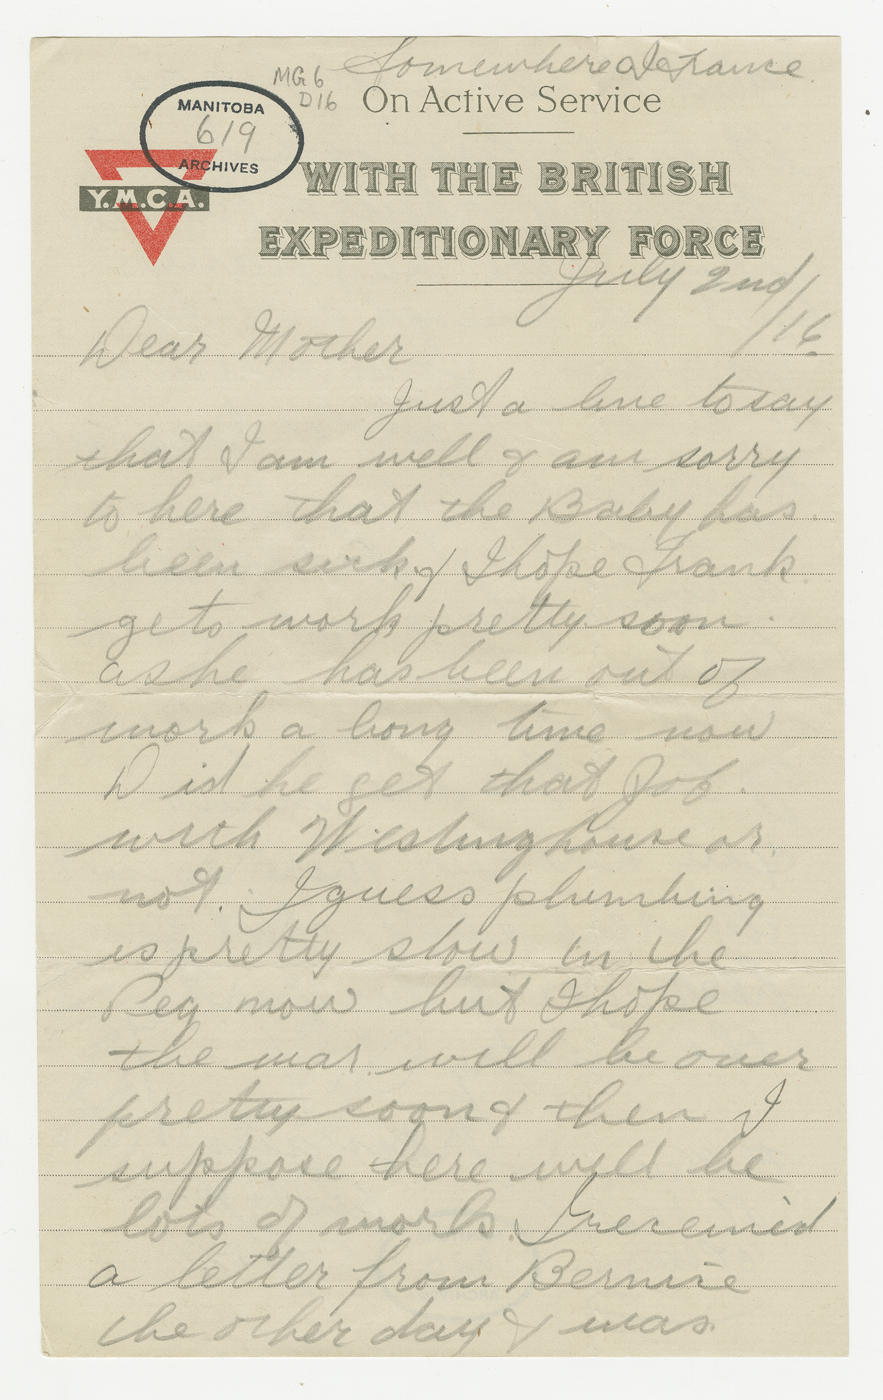 Somewhere In France.
MG6
D16
On Active Service
MANITOBA
619
ARCHIVES
Y.M.C.A.
WITH THE BRITISH
EXPEDITIONARY FORCE
July 2nd/16.
Dear Mother
Just a line to say
that I am well & am sorry
to here that the Baby has
been sick & I hope Frank
gets work pretty soon.
as he has been out of
work a long time now
Did he get that Job.
with Westinghouse or
not. I guess plumbing
is pretty slow in the
Peg now but I hope
the war will be over
pretty soon & then I
suppose there will be
lots of work. I received
a letter from Bernice
the other day & was